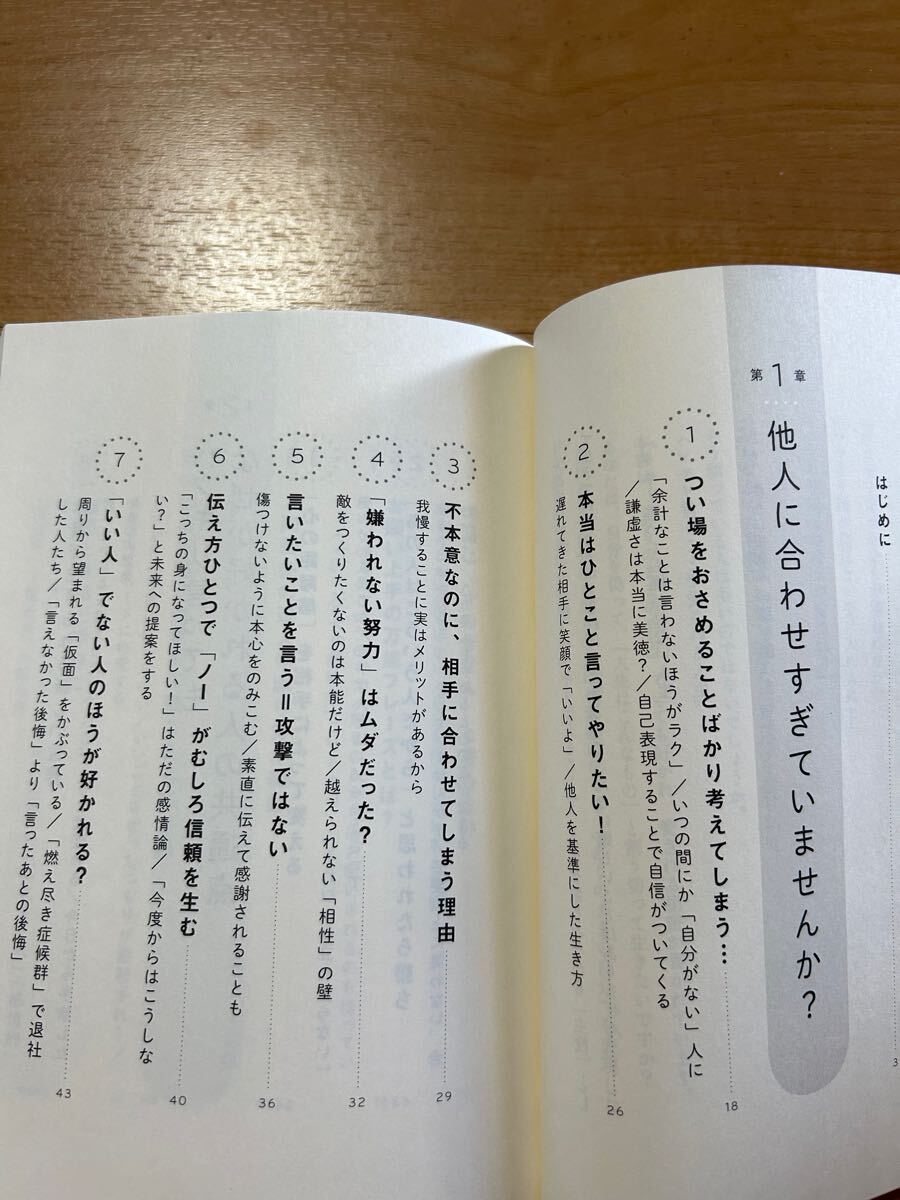 はじめに
3
第1章
他人に合わせすぎていませんか?
1
つい場をおさめることばかり考えてしまう…
18
「余計なことは言わないほうがラク」/いつの間にか「自分がない」人に
/謙虚さは本当に美徳?/自己表現することで自信がついてくる
2
本当はひとこと言ってやりたい!
26
遅れてきた相手に笑顔で「いいよ」/他人を基準にした生き方
3
不本意なのに、相手に合わせてしまう理由
29
我慢することに実はメリットがあるから
4
「嫌われない努力」はムダだった?
32
敵をつくりたくないのは本能だけど/越えられない「相性」の壁
5
言いたいことを言う=攻撃ではない
36
傷つけないように本心をのみこむ/素直に伝えて感謝されることも
6
伝え方ひとつで「ノー」がむしろ信頼を生む
40
「こっちの身になってほしい!」はただの感情論/「今度からはこうしな
い?」と未来への提案をする
7
「いい人」でない人のほうが好かれる?
43
周りから望まれる「仮面」をかぶっている/「燃え尽き症候群」で退社
した人たち/「言えなかった後悔」より「言ったあとの後悔」